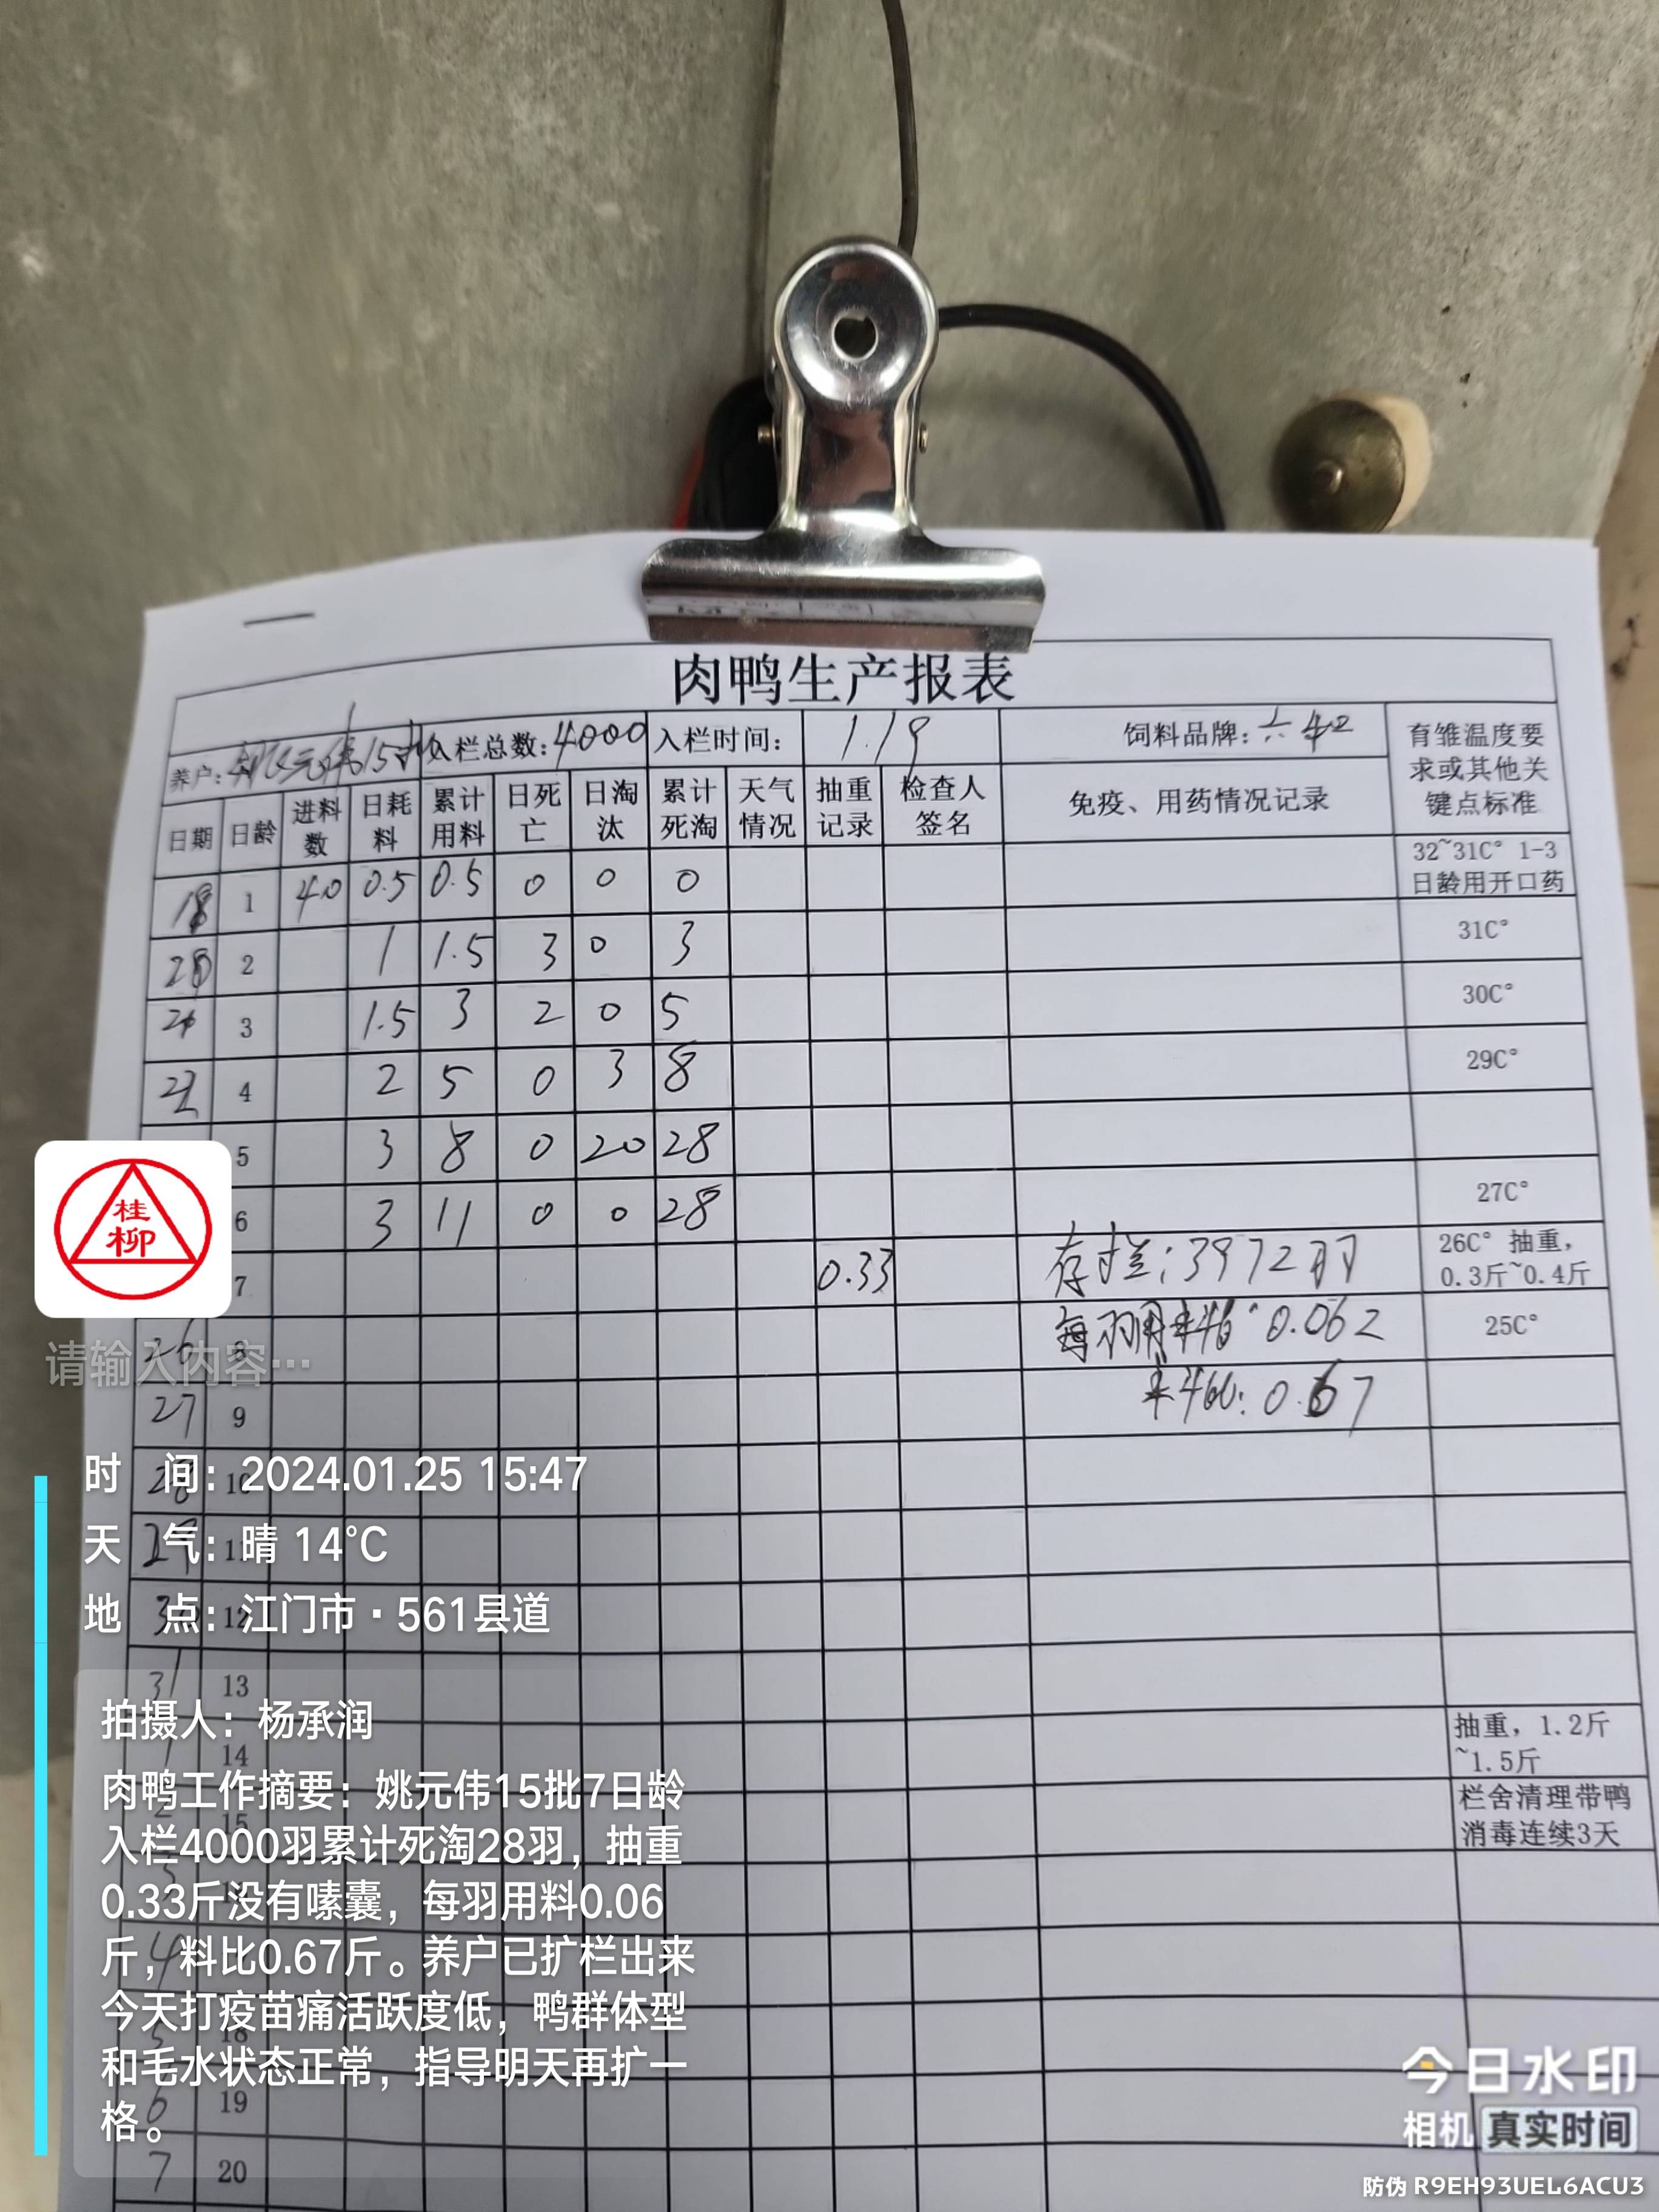 肉鸭生产报表
养户: 姚元伟15批 入栏总数: 4000 入栏时间: 1.19 饲料品牌: 六和 育雏温度要求或其他关键点标准
日期 日龄 进料数 日耗料 累计用料 日死亡 日淘汰 累计死淘 天气情况 抽重记录 检查人签名 免疫、用药情况记录
1 40 0.5 0.5 0 0 0 32~31C° 1-3日龄用开口药
2 1 1.5 3 0 3 31C°
3 1.5 3 2 0 5 30C°
22 4 2 5 0 3 8 29C°
5 3 8 0 20 28
6 3 11 0 0 28 27C°
7 0.33 存栏: 3972羽 26C° 抽重, 0.3斤~0.4斤
26 8 每羽用料: 0.062 25C°
27 9 料比: 0.67
28 10
29 11
30 12
31 13
1 14 抽重, 1.2斤~1.5斤
2 15 栏舍清理带鸭消毒连续3天
3
4
5 18
6 19
7 20
桂柳
请输入内容…
时 间: 2024.01.25 15:47
天 气: 晴 14°C
地 点: 江门市·561县道
拍摄人: 杨承润
肉鸭工作摘要: 姚元伟15批7日龄
入栏4000羽累计死淘28羽, 抽重
0.33斤没有嗉囊, 每羽用料0.06
斤, 料比0.67斤。养户已扩栏出来
今天打疫苗痛活跃度低, 鸭群体型
和毛水状态正常, 指导明天再扩一
格。
今日水印
相机 真实时间
防伪 R9EH93UEL6ACU3